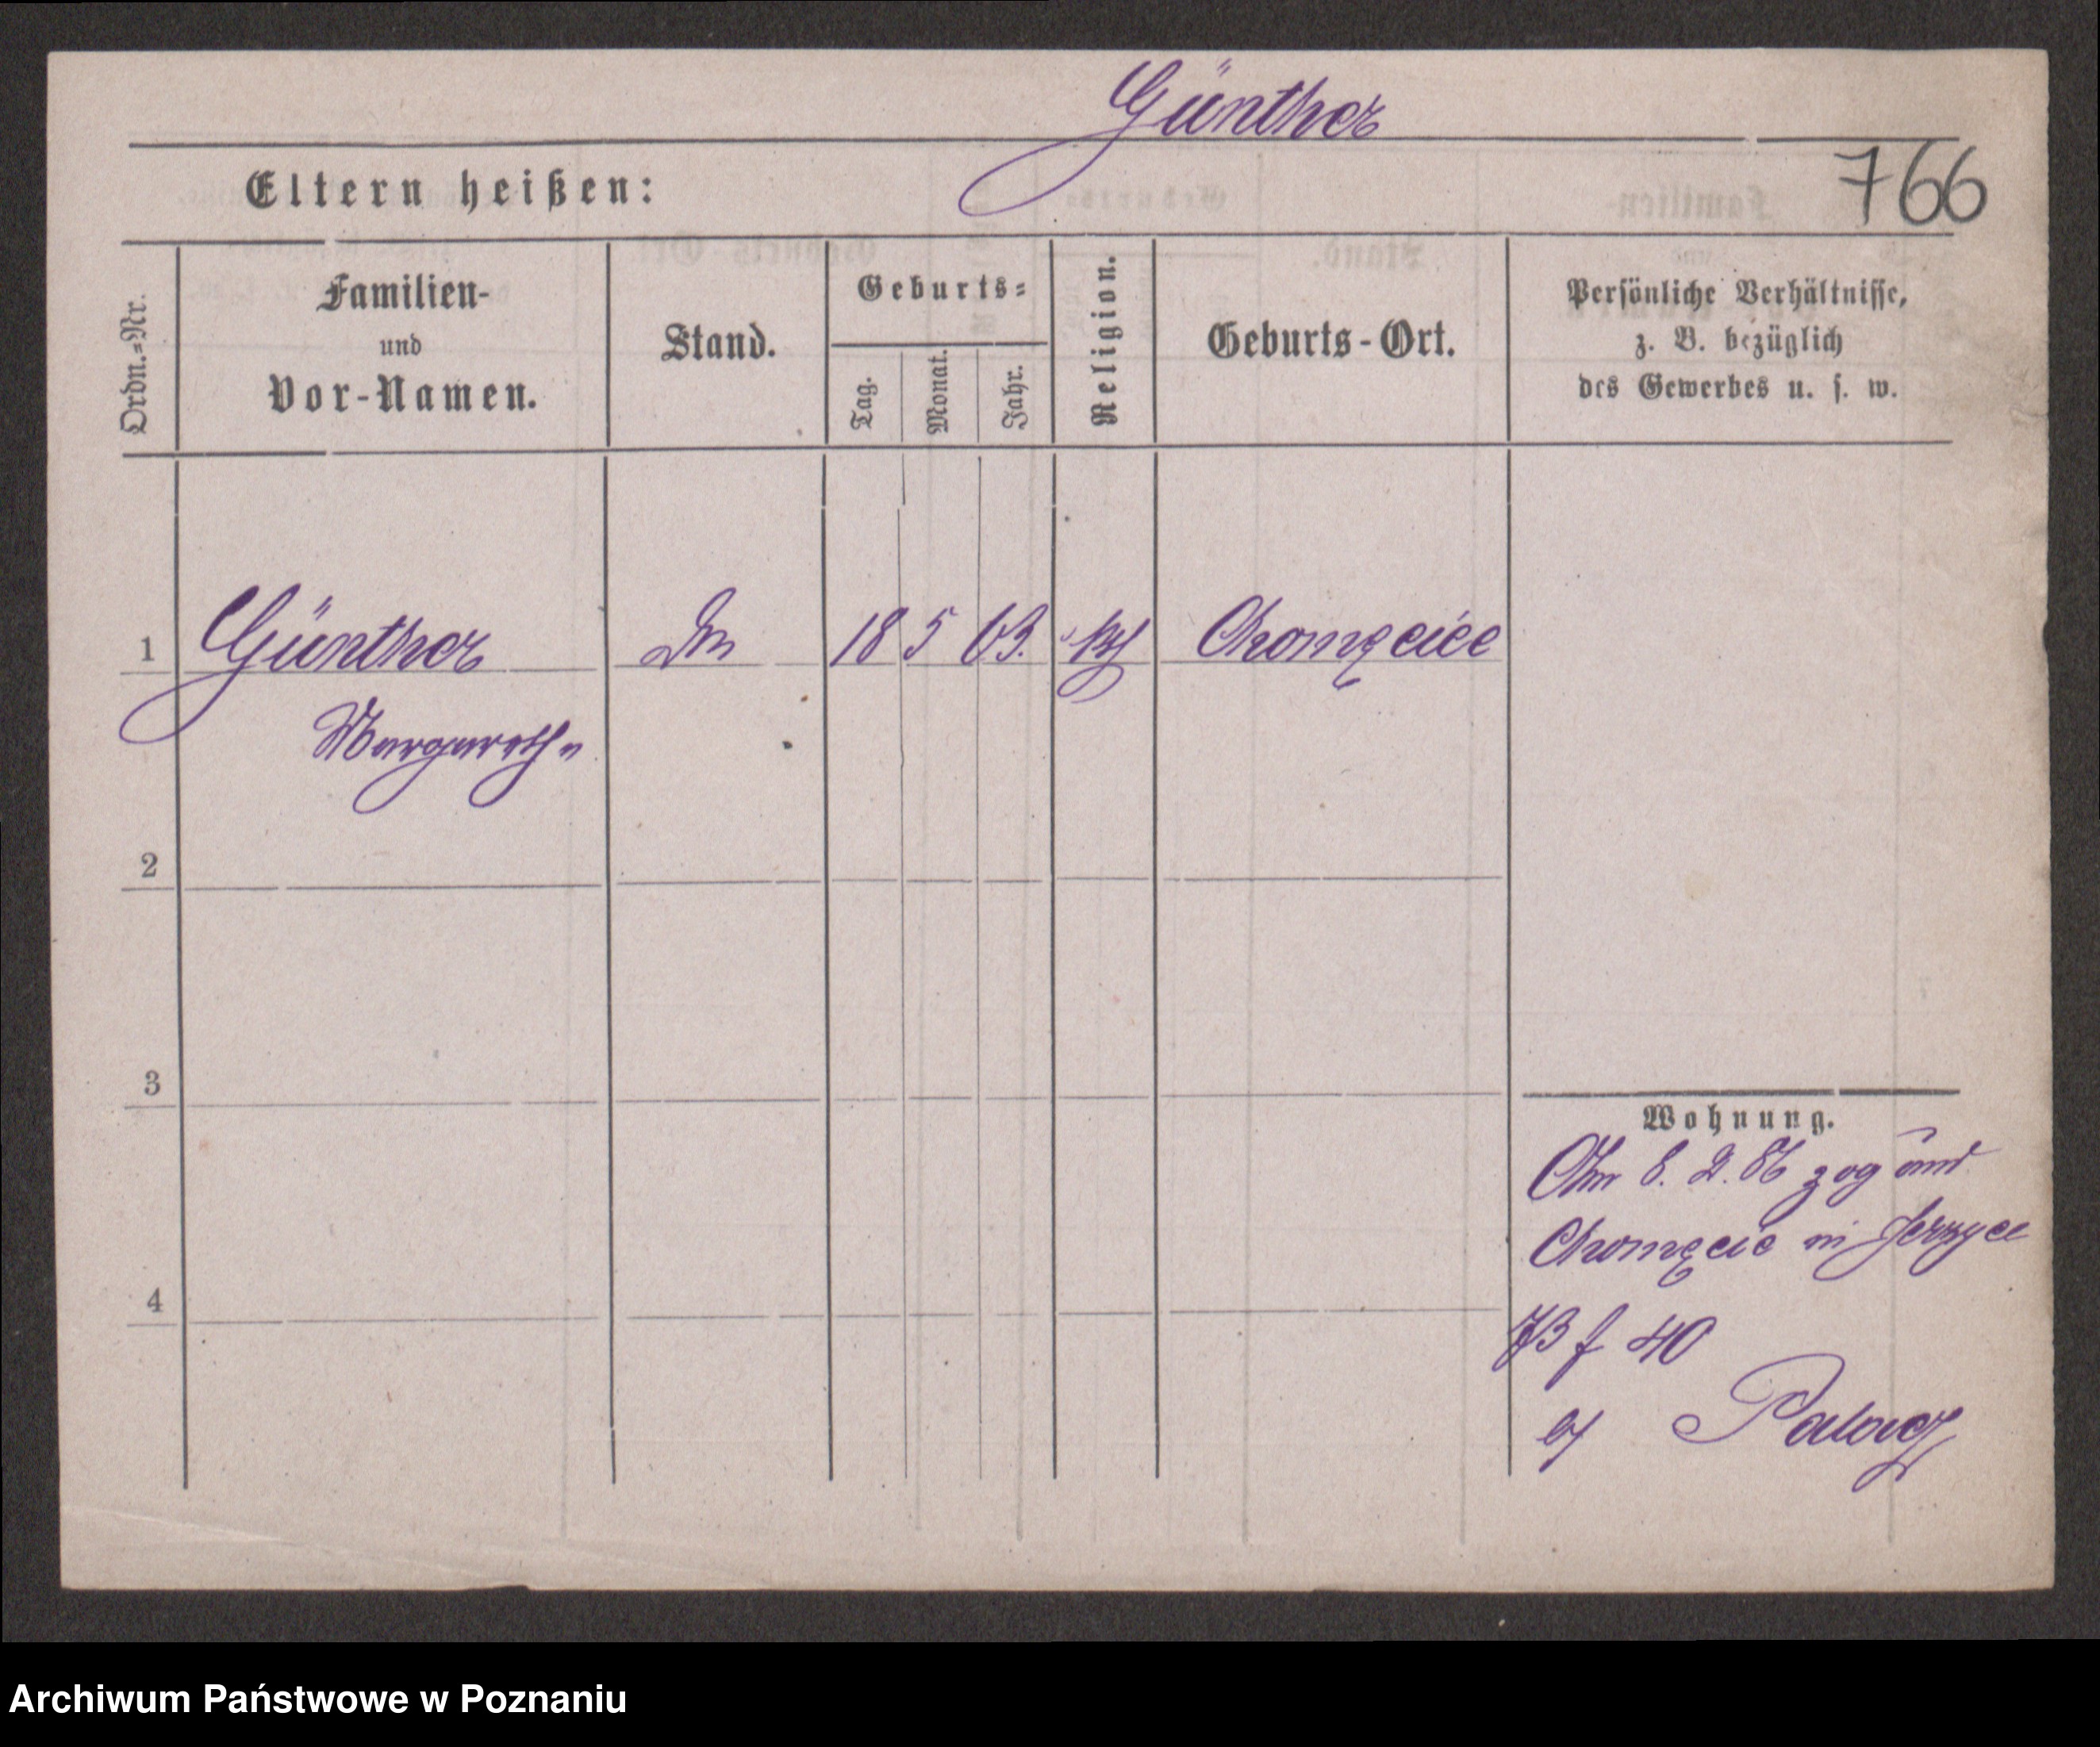 Günther
766
Eltern heißen:
Ordn.=Nr.
Familien-
und
Vor-Namen.
Stand.
Geburts=
Tag.
Monat.
Jahr.
Religion.
Geburts-Ort.
Persönliche Verhältnisse,
z. B. bezüglich
des Gewerbes u. s. w.
1 Günther 18 5 63. Chomęcice
Margareth
2
3
4
Wohnung.
Am 8. 2. 86 zog
Chomęcic in Jerzyce
f 40
Palacz
Archiwum Państwowe w Poznaniu